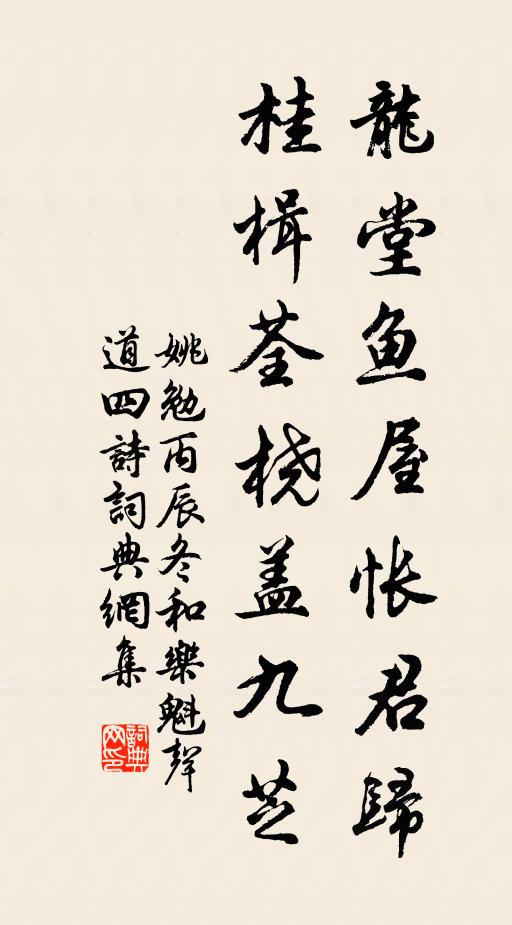 龍堂鱼屋帐君歸
桂楫荃桡盖九芝
姚勉丙辰冬和樂魁聲
道四詩詞典網集
詞典网印